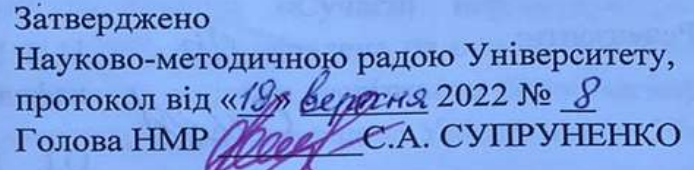 Затверджено
Науково-методичною радою Університету,
протокол від «19» вересня 2022 № 8
Голова НМР С.А. СУПРУНЕНКО